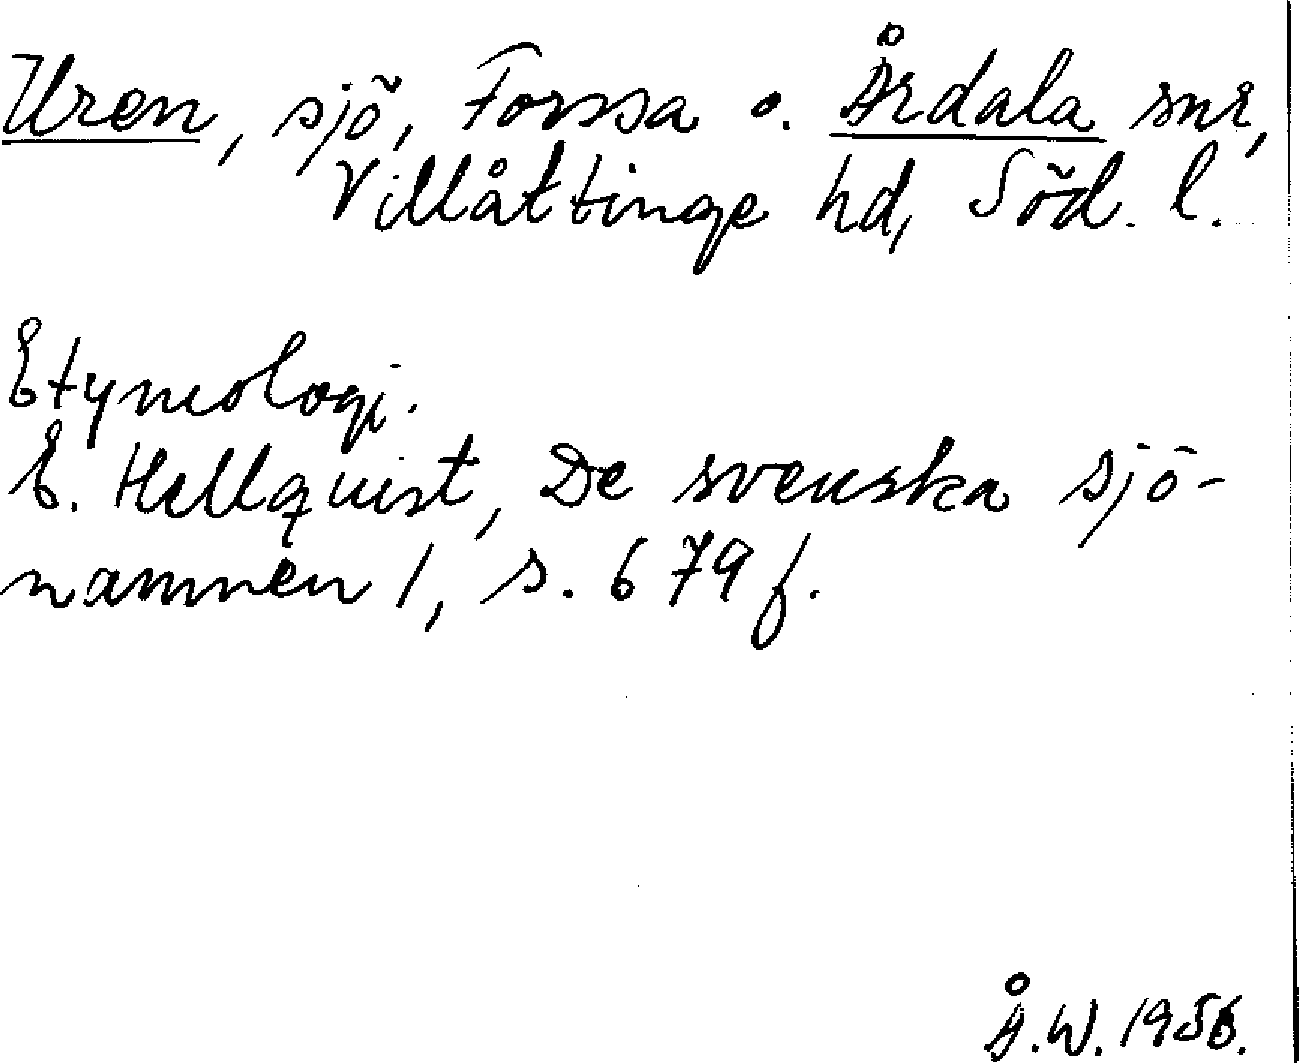 Uren, sjö, Forssa o. Årdala snr,
Villåttinge hd, Söd. l.
Etymologi.
E. Hellquist, De svenska sjö-
namnen 1, s. 679 f.
Å.W. 1956.